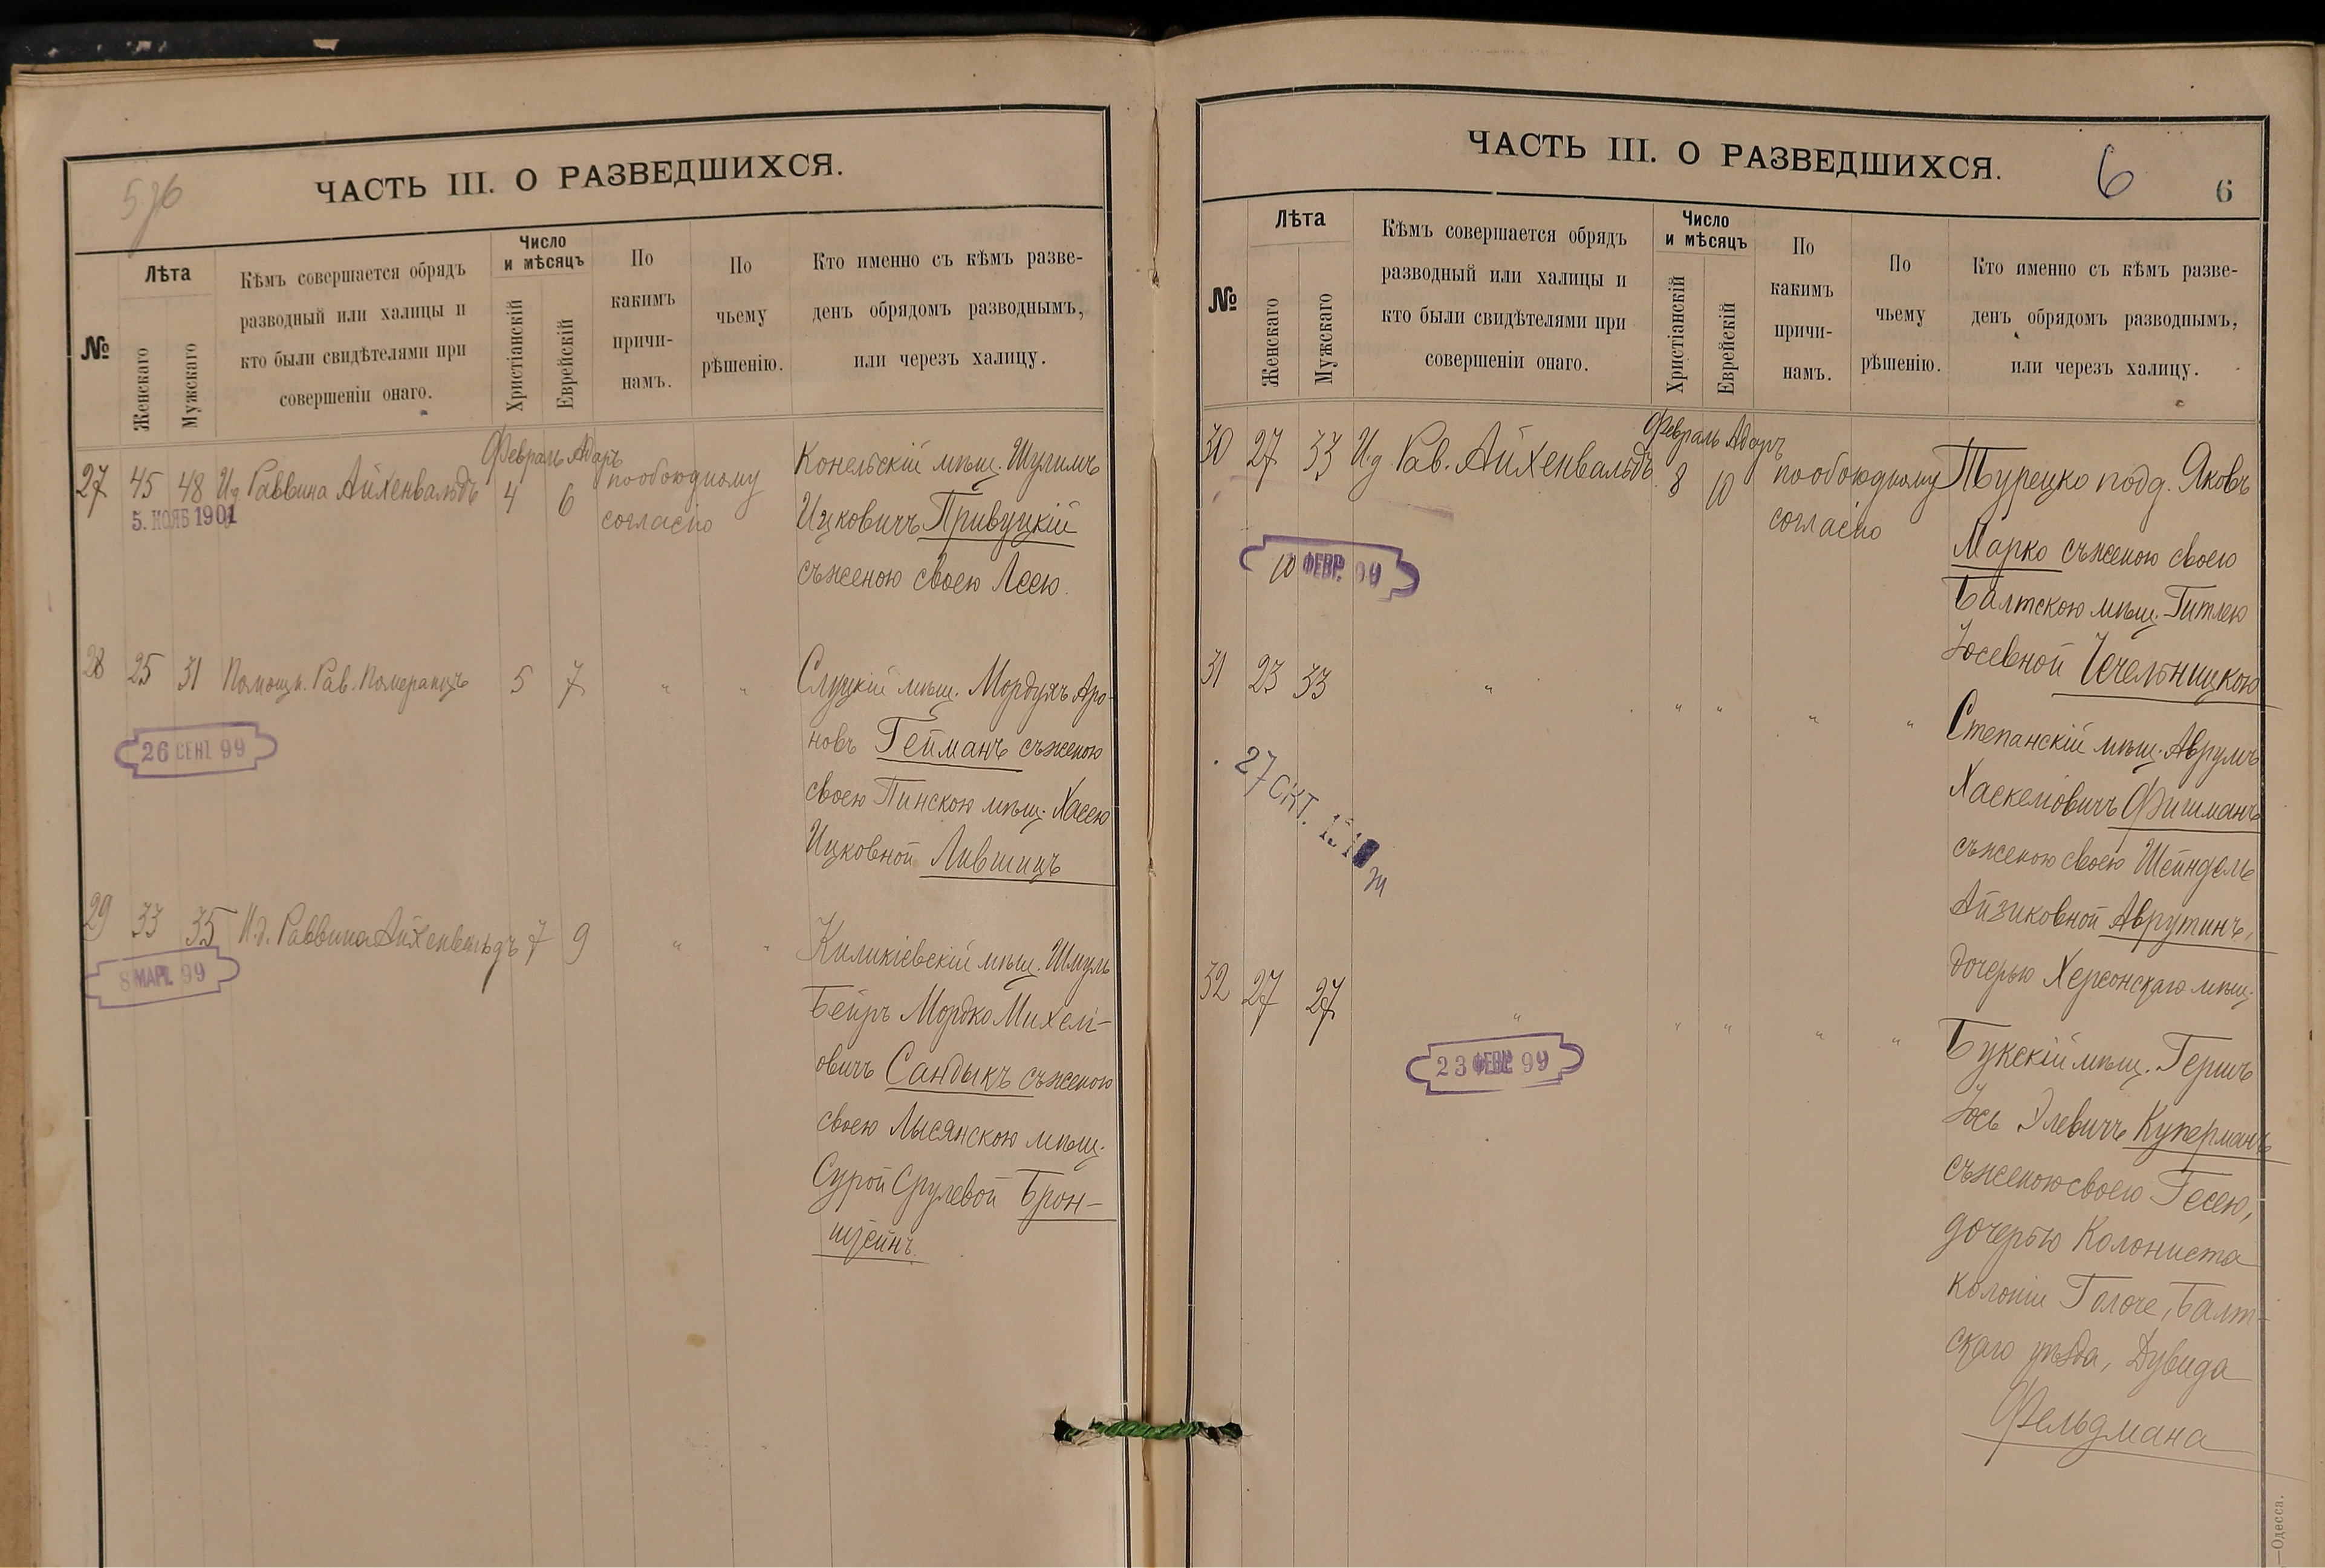 576
ЧАСТЬ III. О РАЗВЕДШИХСЯ.
№
Лѣта
Женскаго
Мужскаго
Кѣмъ совершается обрядъ
разводный или халицы и
кто были свидѣтелями при
совершеніи онаго.
Число
и мѣсяцъ
Христіанскій
Еврейскій
По
какимъ
причи-
намъ.
По
чьему
рѣшенію.
Кто именно съ кѣмъ разве-
денъ обрядомъ разводнымъ,
или черезъ халицу.
Февраль Адаръ
27 45 48 И.д Раввина Айхенвальдъ 4 6 по обоюдному
согласію
5. НОЯБ 1901
Конельскій мѣщ. Шулимъ
Ицковичъ Привуцкій
съ женою своею Леею.
28 25 31 Помощн. Рав. Померанцъ 5 7 " "
26 СЕНТ 99
Слуцкій мѣщ. Мордухъ Аро-
новъ Гейманъ съ женою
своею Пинскою мѣщ. Хасею
Ицковной Лившицъ
29 33 35 И.д. Раввина Айхенвальдъ 7 9 " "
8 МАР. 99
Киликіевскій мѣщ. Шмуль
Бейръ Мордко Михелі-
овичъ Сандыкъ съ женою
своею Лысянскою мѣщ.
Сурой Срулевой Брон-
штейнъ.
ЧАСТЬ III. О РАЗВЕДШИХСЯ.
6
6
№
Лѣта
Женскаго
Мужскаго
Кѣмъ совершается обрядъ
разводный или халицы и
кто были свидѣтелями при
совершеніи онаго.
Число
и мѣсяцъ
Христіанскій
Еврейскій
По
какимъ
причи-
намъ.
По
чьему
рѣшенію.
Кто именно съ кѣмъ разве-
денъ обрядомъ разводнымъ,
или черезъ халицу.
Февраль Адаръ
30 27 33 И.д. Рав. Айхенвальдъ. 8 10 по обоюдному
согласію
10 ФЕВР. 99
Турецко подд. Яковъ
Марко съ женою своею
Балтскою мѣщ. Гитлею
Іосевной Чечельницкою
31 23 33 " " " " "
27 ОКТ.
Степанскій мѣщ. Аврумъ
Хаскеліовичъ Фишманъ
съ женою своею Шейндель
Айзиковной Аврутинъ,
дочерью Херсонскаго мѣщ.
32 27 27 " " " " "
23 ФЕВР. 99
Букскій мѣщ. Гершъ
Іось Элевичъ Куперманъ
съ женою своею Гесею,
дочерью Колониста
колоніи Голоче, Балт-
скаго уѣзда, Дувида
Фельдмана
—Одесса.